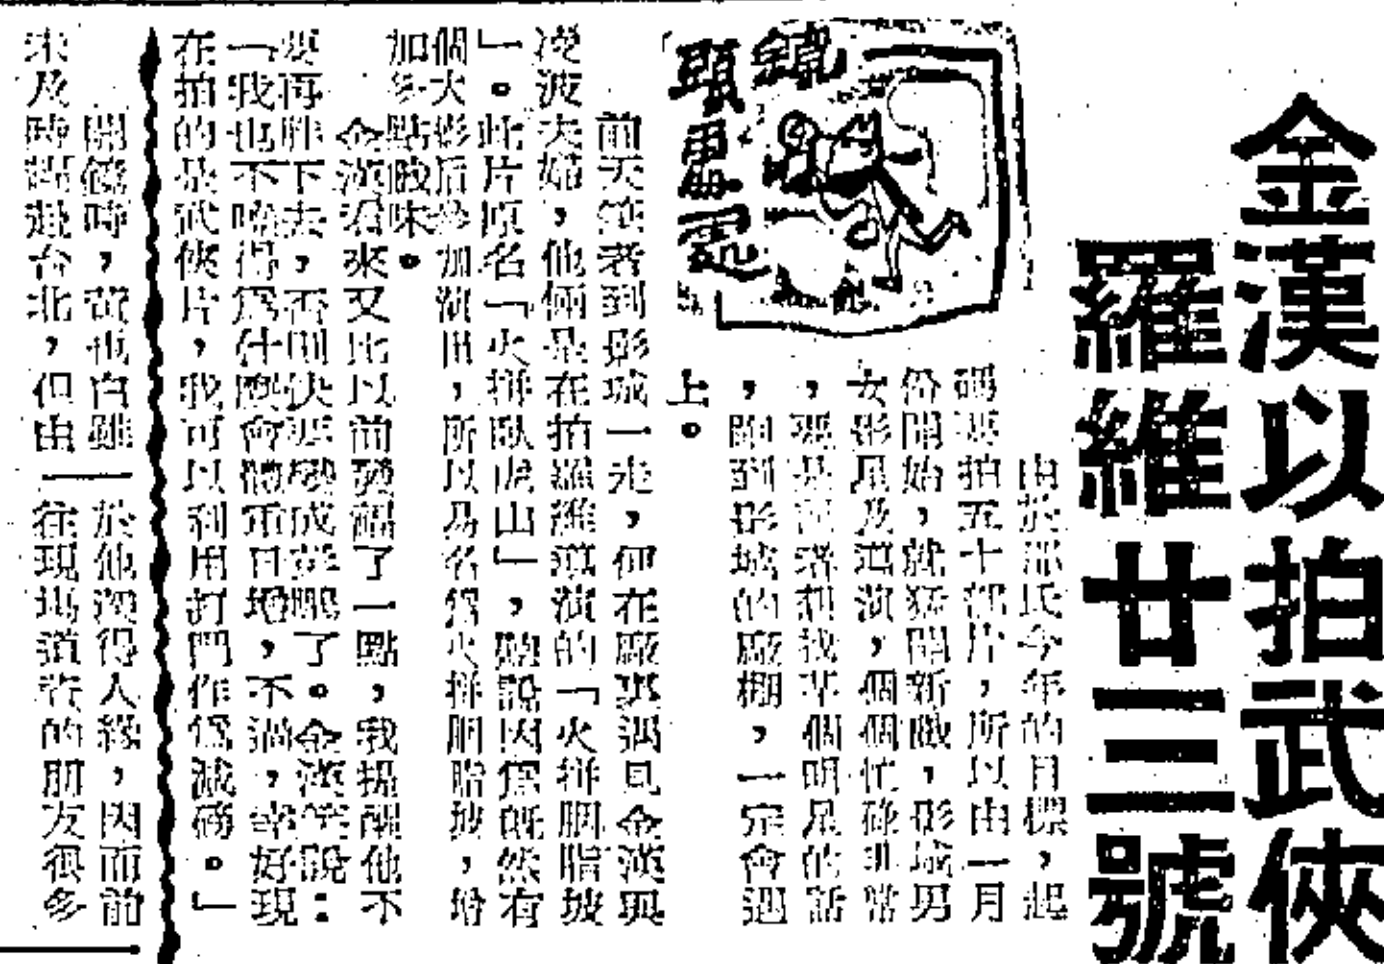 金漢以拍武俠
羅維廿三號
鏡頭
由於邵氏今年的目標,起
碼要拍五十部片,所以由一月
份開始,就猛開新戲,影城男
女影星及導演,個個忙碌非常
,要是記者想找某個明星的話
,跑到影城的廠棚,一定會遇
上。
前天筆者到影城一走,便在廠裏遇見金漢與
凌波夫婦,他倆是在拍羅維導演的「火拼胭脂坡
」。此片原名「火拼臥虎山」,聽說因爲旣然有
個大影后參加演出,所以易名爲火拼胭脂坡,增
加多點脂味。
金漢看來又比以前發福了一點,我提醒他不
要再胖下去,否則快要變成笨鵬了。金漢笑說:
「我也不曉得爲什麽會體重日增,不過,幸好現
在拍的是武俠片,我可以利用打鬥作爲減磅。」
開鏡時,黃也白雖於他深得人緣,因而前
未及時趕赴台北,但由一往現場道賀的朋友很多